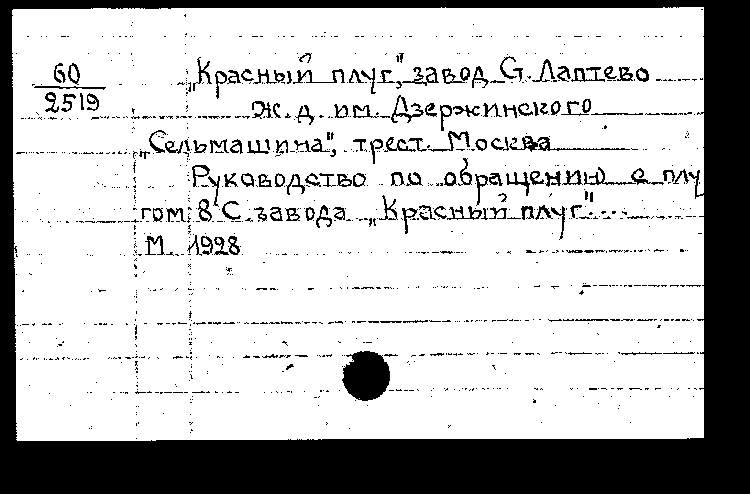 60
2519
„Красный плуг", завод Ст. Лаптево
ж. д. им. Дзержинского
„Сельмашина", трест. Москва
Руководство по обращению с плу
гом 8'С завода „Красный плуг"...
М. 1928